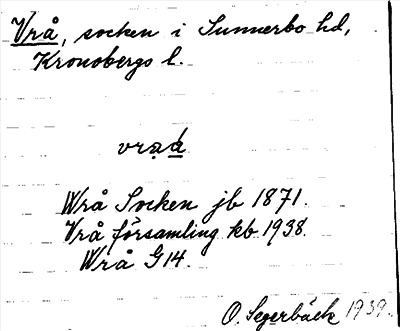 Vrå, socken i Sunnerbo hd,
Kronobergs l.
vraá
Wrå Socken jb 1871.
Vrå församling kb 1938.
Wrå G14.
O. Segerbäck 1939.